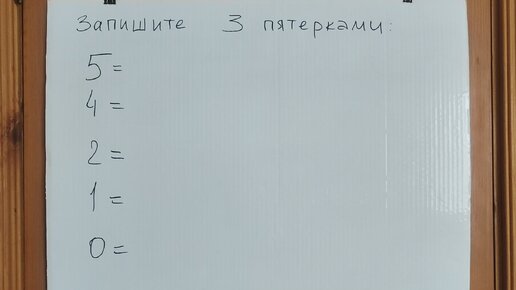 Запишите 3 пятерками:
5=
4=
2=
1=
0=